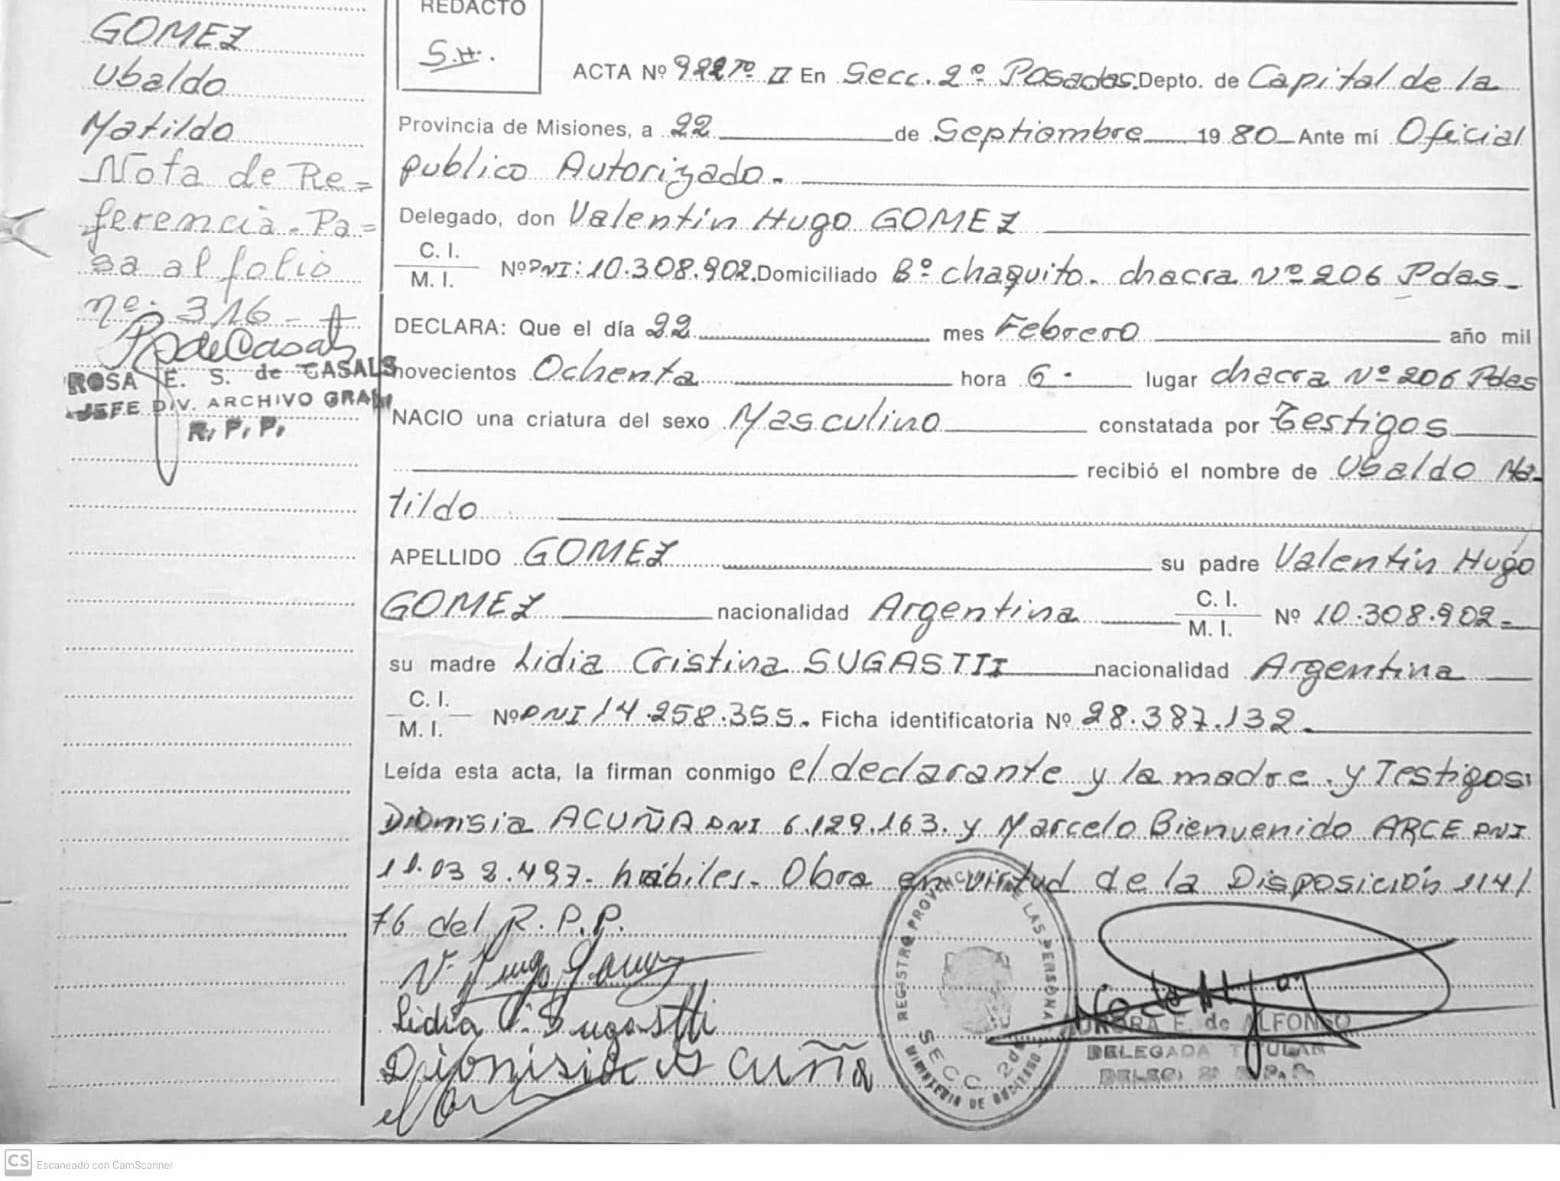 GOMEZ
Ubaldo
Matildo
Nota de Re=
ferencia. Pa=
sa al folio
nº: 316 -
ROSA E. S. de CASALS
JEFE DIV. ARCHIVO GRAL
R. P. P.
REDACTO
S.H.
ACTA Nº Tº II En Secc. 2º Posadas. Depto. de Capital de la
Provincia de Misiones, a 22 de Septiembre 1980 Ante mi Oficial
publico Autorizado.
Delegado, don Valentin Hugo GOMEZ
C. I.
M. I. Nº DNI: 10.308.902. Domiciliado Bº chaquito. chacra Nº 206 Pdas.
DECLARA: Que el día 22 mes Febrero año mil
novecientos Ochenta hora 6. lugar chacra Nº 206 Pdas
NACIO una criatura del sexo Masculino constatada por Testigos
recibió el nombre de Ubaldo Ma-
tildo
APELLIDO GOMEZ su padre Valentin Hugo
GOMEZ nacionalidad Argentina C. I.
M. I. Nº 10.308.902=
su madre Lidia Cristina SUGASTTI nacionalidad Argentina
C. I.
M. I. Nº DNI 14.258.355. Ficha identificatoria Nº 28.387.132.
Leída esta acta, la firman conmigo el declarante y la madre. y Testigos:
Dionisia ACUÑA DNI 6.129.163. y Marcelo Bienvenido ARCE DNI
11.032.497. hábiles. Obra en virtud de la Disposición 114/
76 del R. P. P.
V. Hugo Gomez
Lidia C. Sugastti
Dionisia Acuña
REGISTRO PROVINCIAL DE LAS PERSONAS
SECC 2da
MINISTERIO DE GOBIERNO
AURORA F. de ALFONSO
DELEGADA TITULAR
DELEG. 2ª R. P. P.
CS Escaneado con CamScanner